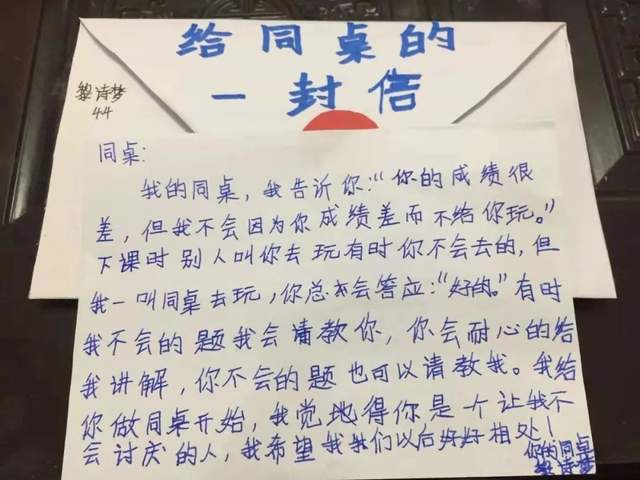 给同桌的
一封信
黎诗梦
44
同桌:
我的同桌,我告诉你:“你的成绩很
差,但我不会因为你成绩差而不给你玩。”
下课时别人叫你去玩有时你不会去的,但
我一叫同桌去玩,你总会答应:“好的。”有时
我不会的题我会请教你,你会耐心的给
我讲解,你不会的题也可以请教我。我给
你做同桌开始,我觉地得你是一个让我不
会讨厌的人,我希望我我们以后好好相处!
你的同桌
黎诗梦